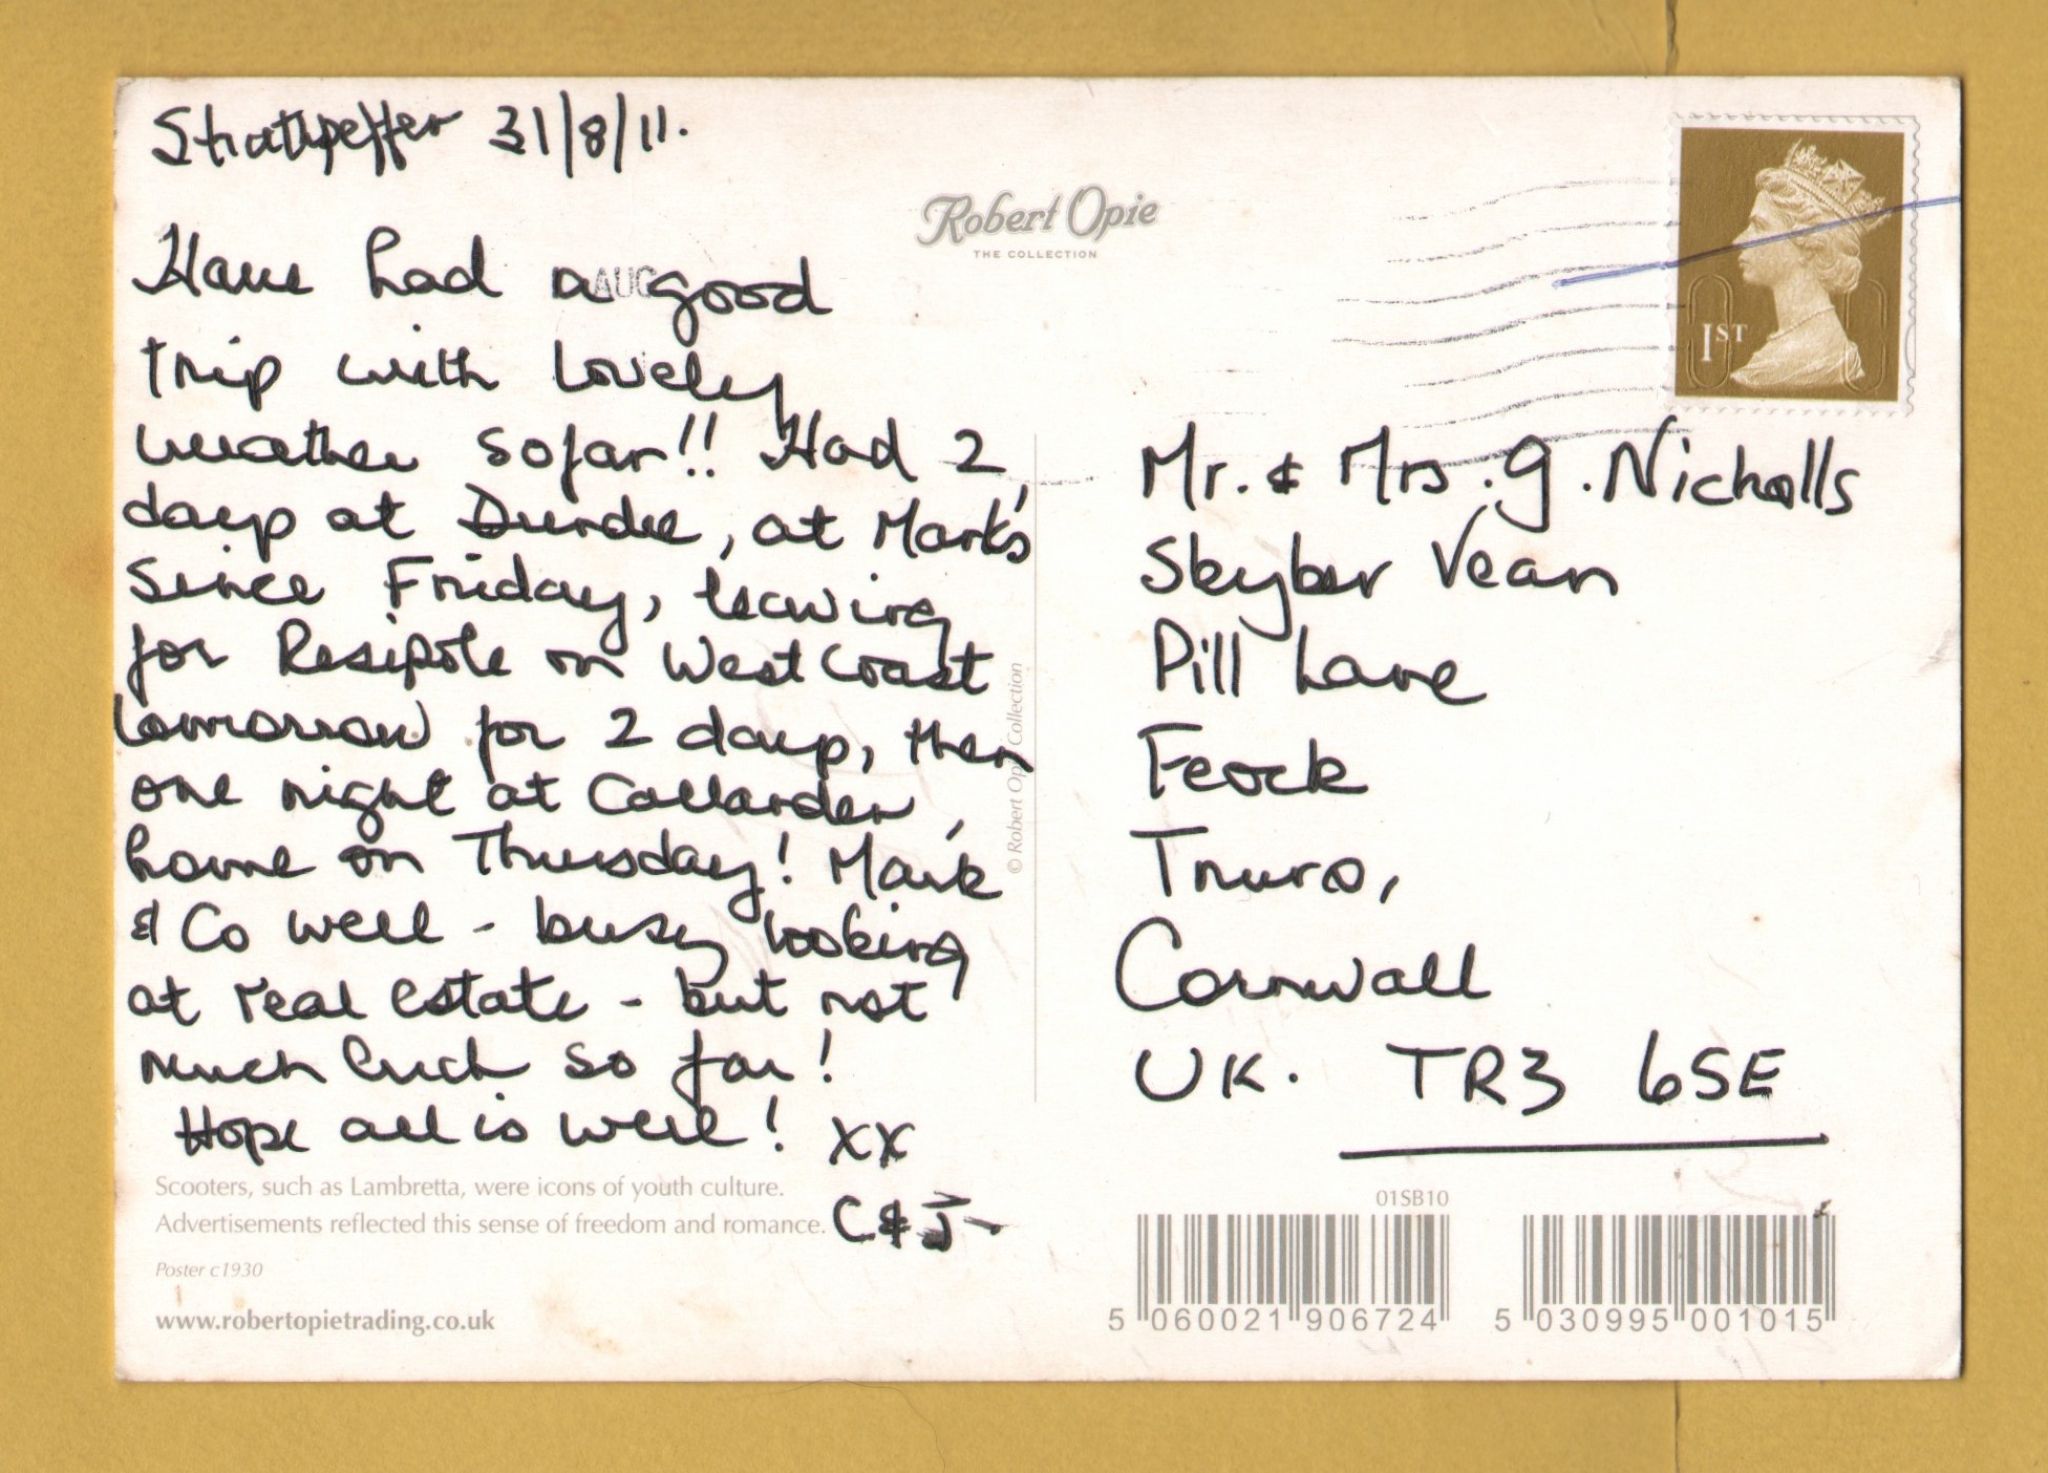 Strathpeffer 31/8/11.
Have had a good
trip with lovely
weather so far!! Had 2
days at Dundee, at Mark's
since Friday, leaving
for Resipole on West Coast
tomorrow for 2 days, then
one night at Callander,
home on Thursday! Mark
& Co well - busy looking
at real estate - but not
much luck so far!
Hope all is well! xx
C & J
Scooters, such as Lambretta, were icons of youth culture.
Advertisements reflected this sense of freedom and romance.
Poster c1930
www.robertopietrading.co.uk
Robert Opie
THE COLLECTION
AUG
© Robert Opie Collection
1ST
Mr. & Mrs. G. Nicholls
Skyber Vean
Pill Lane
Feock
Truro,
Cornwall
UK. TR3 6SE
01SB10
5 060021 906724
5 030995 001015